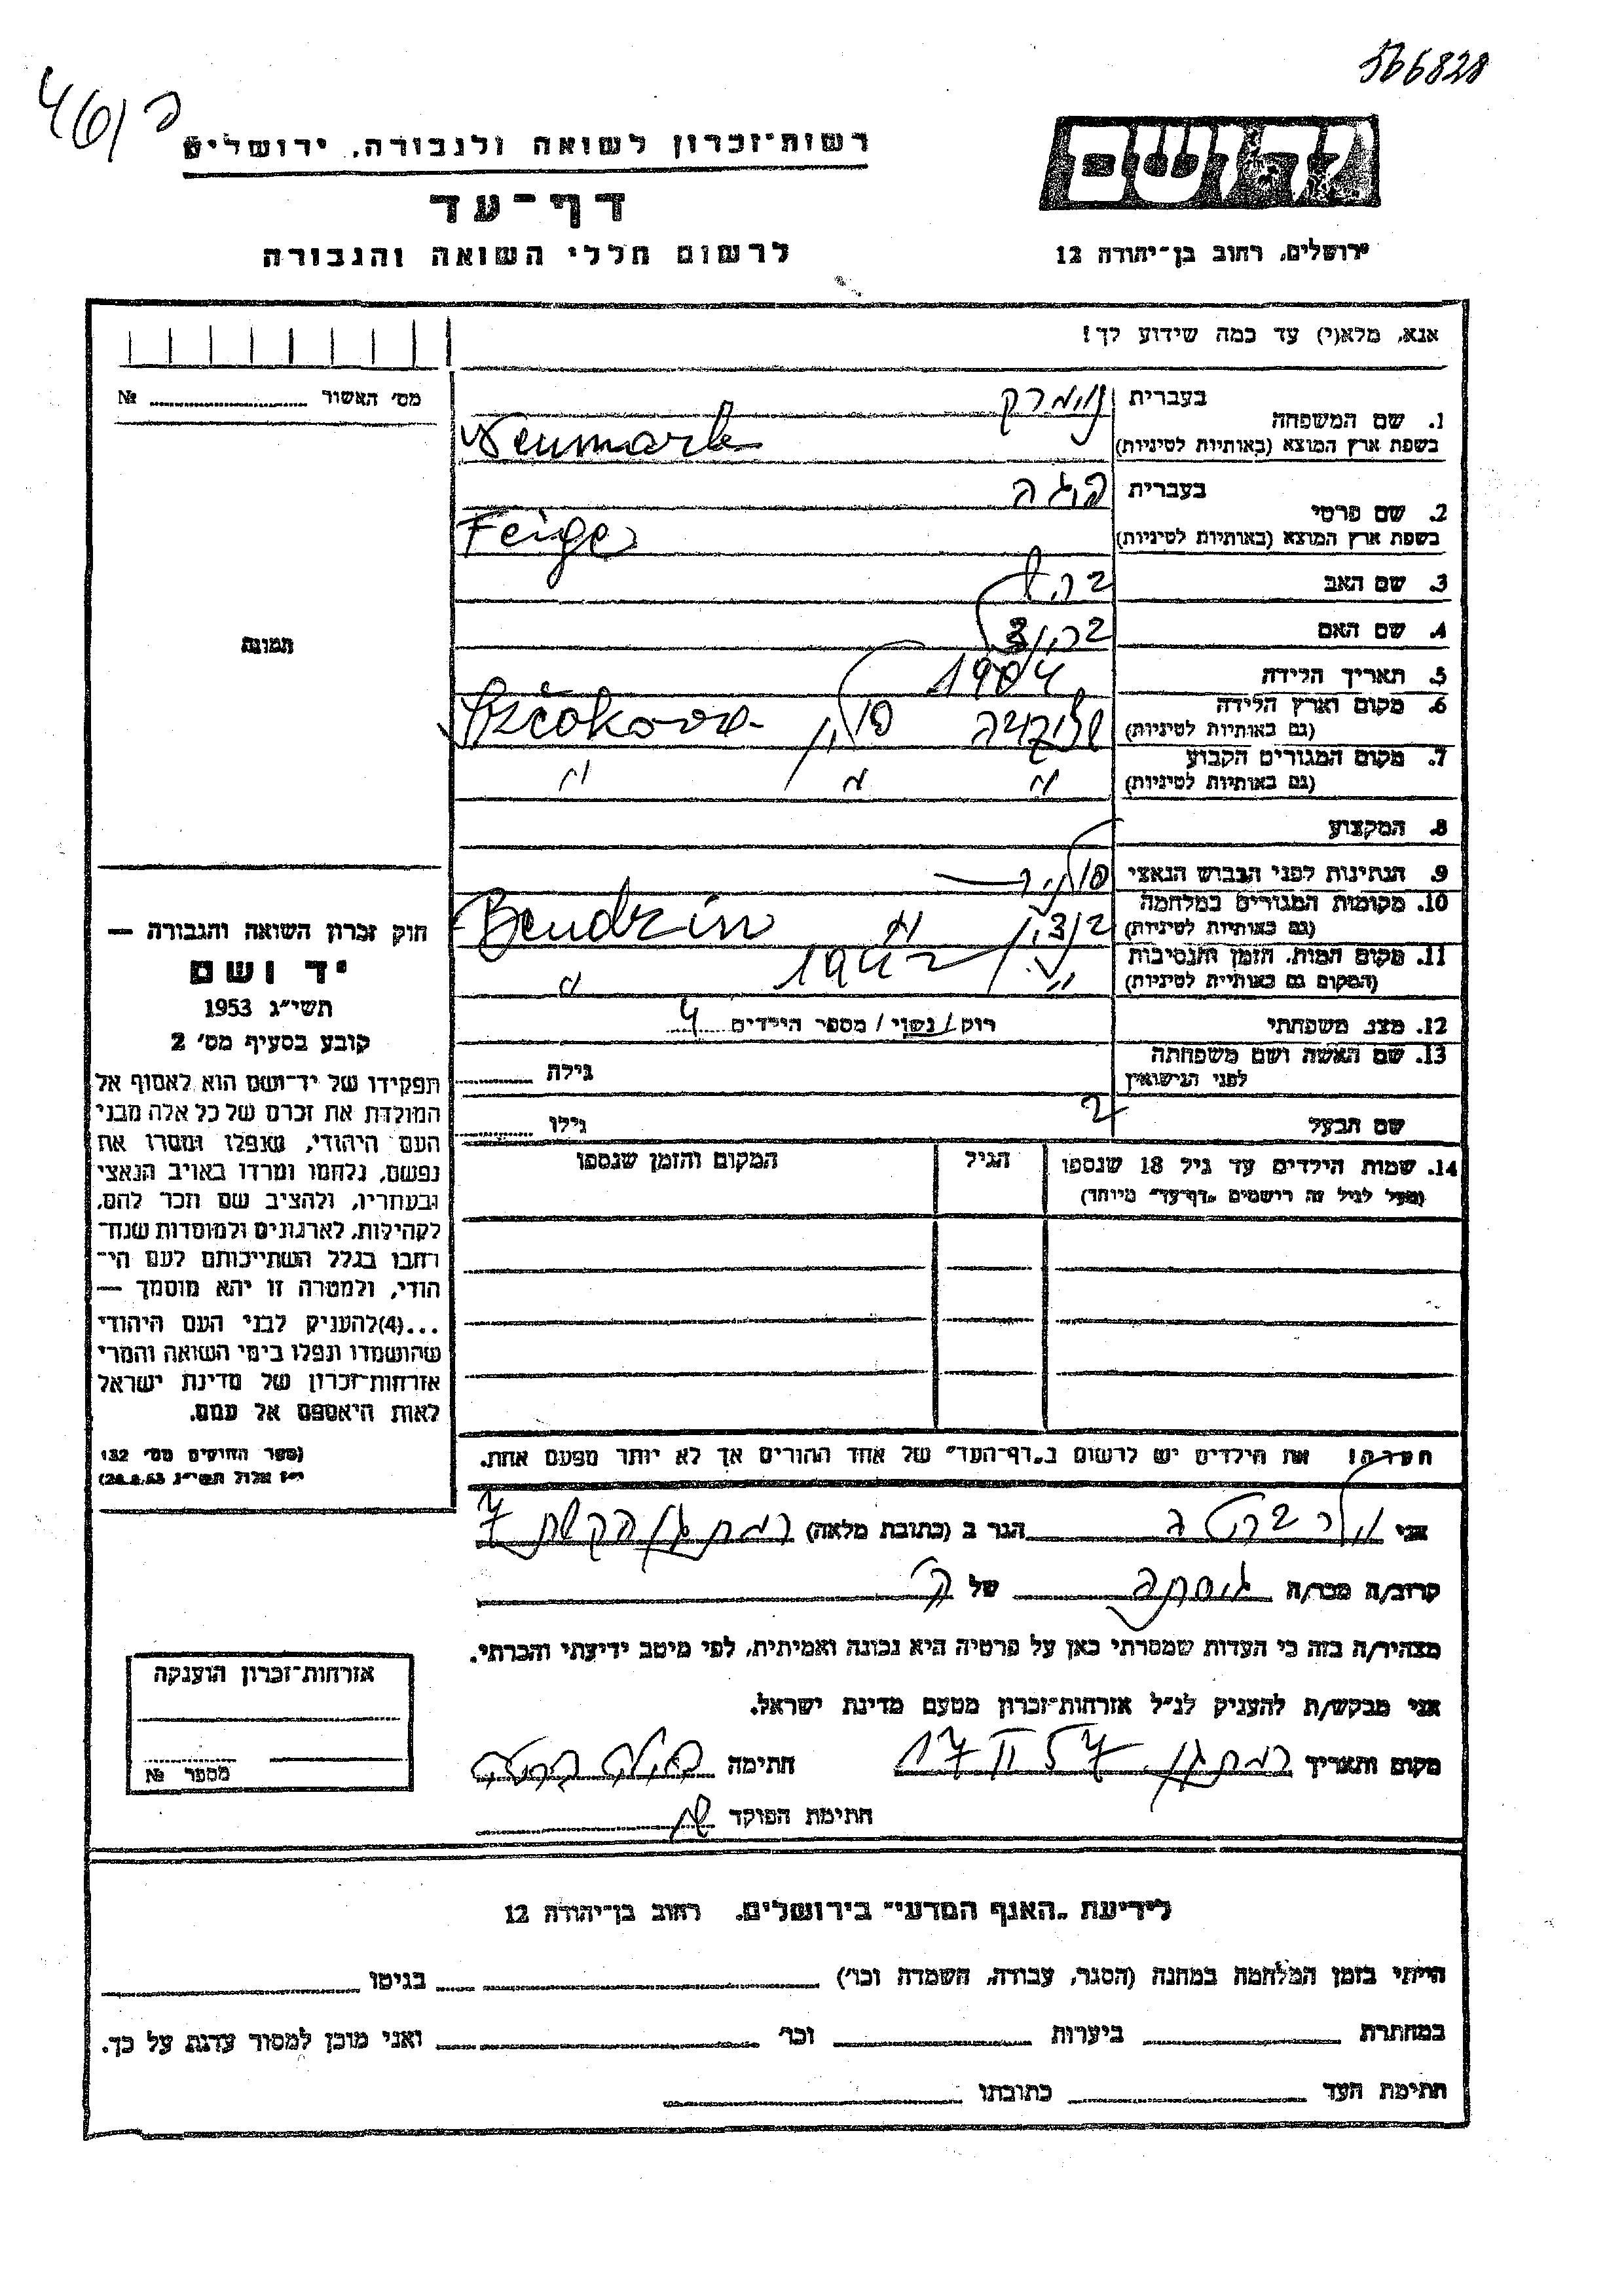 566828
461פ
יד ושם
רשות־זכרון לשואה ולגבורה, ירושלים
דף־עד
לרשום חללי השואה והגבורה
ירושלים, רחוב בן־יהודה 12
אנא, מלא(י) עד כמה שידוע לך!
מס׳ האשור № ........
1. שם המשפחה בעברית נוימרק
בשפת ארץ המוצא (באותיות לטיניות) Neumark
2. שם פרטי בעברית פיגה
בשפת ארץ המוצא (באותיות לטיניות) Feige
3. שם האב
4. שם האם
5. תאריך הלידה 1904
6. מקום וארץ הלידה פולין
(גם באותיות לטיניות)
7. מקום המגורים הקבוע
(גם באותיות לטיניות) " " "
8. המקצוע
9. הנתינות לפני הכבוש הנאצי פולנית
10. מקומות המגורים במלחמה
(גם באותיות לטיניות) בנדזין " Bendzin
11. מקום המות, הזמן והנסיבות
(המקום גם באותיות לטיניות) " 1942 "
12. מצב משפחתי רוק/נשוי/מספר הילדים 4
13. שם האשה ושם משפחתה
לפני הנישואין גילה ........
שם הבעל גילו ........
14. שמות הילדים עד גיל 18 שנספו הגיל המקום והזמן שנספו
(מעל לגיל זה רושמים "דף־עד" מיוחד)
הערה! את הילדים יש לרשום ב"דף־העד" של אחד ההורים אך לא יותר מפעם אחת.
תמונה
חוק זכרון השואה והגבורה —
יד ושם
תשי״ג 1953
קובע בסעיף מס׳ 2
תפקידו של יד־ושם הוא לאסוף אל
המולדת את זכרם של כל אלה מבני
העם היהודי, שנפלו ומסרו את
נפשם, נלחמו ומרדו באויב הנאצי
ובעוזריו, ולהציב שם וזכר להם,
לקהילות, לארגונים ולמוסדות שנח־
רבו בגלל השתייכותם לעם הי־
הודי, ולמטרה זו יהא מוסמך —
...(4)להעניק לבני העם היהודי
שהושמדו ונפלו בימי השואה והמרי
אזרחות־זכרון של מדינת ישראל
לאות היאספם אל עמם.
(ספר החוקים מס׳ 132
י״ז אלול תשי״ג, 28.8.53)
אני הגר ב (כתובת מלאה) רמת גן הקשת 7
קרוב/ה מכר/ה של
מצהיר/ה בזה כי העדות שמסרתי כאן על פרטיה היא נכונה ואמיתית, לפי מיטב ידיעתי והכרתי.
אני מבקש/ת להעניק לנ״ל אזרחות־זכרון מטעם מדינת ישראל.
מקום ותאריך רמת גן 17 II 57 חתימה
חתימת הפוקד
אזרחות־זכרון הוענקה
מספר №
לידיעת "האגף המדעי" בירושלים, רחוב בן־יהודה 12
הייתי בזמן המלחמה במחנה (הסגר, עבודה, השמדה וכו׳) בגיטו
במחתרת ביערות וכו׳ ואני מוכן למסור עדות על כך.
חתימת העד כתובתו